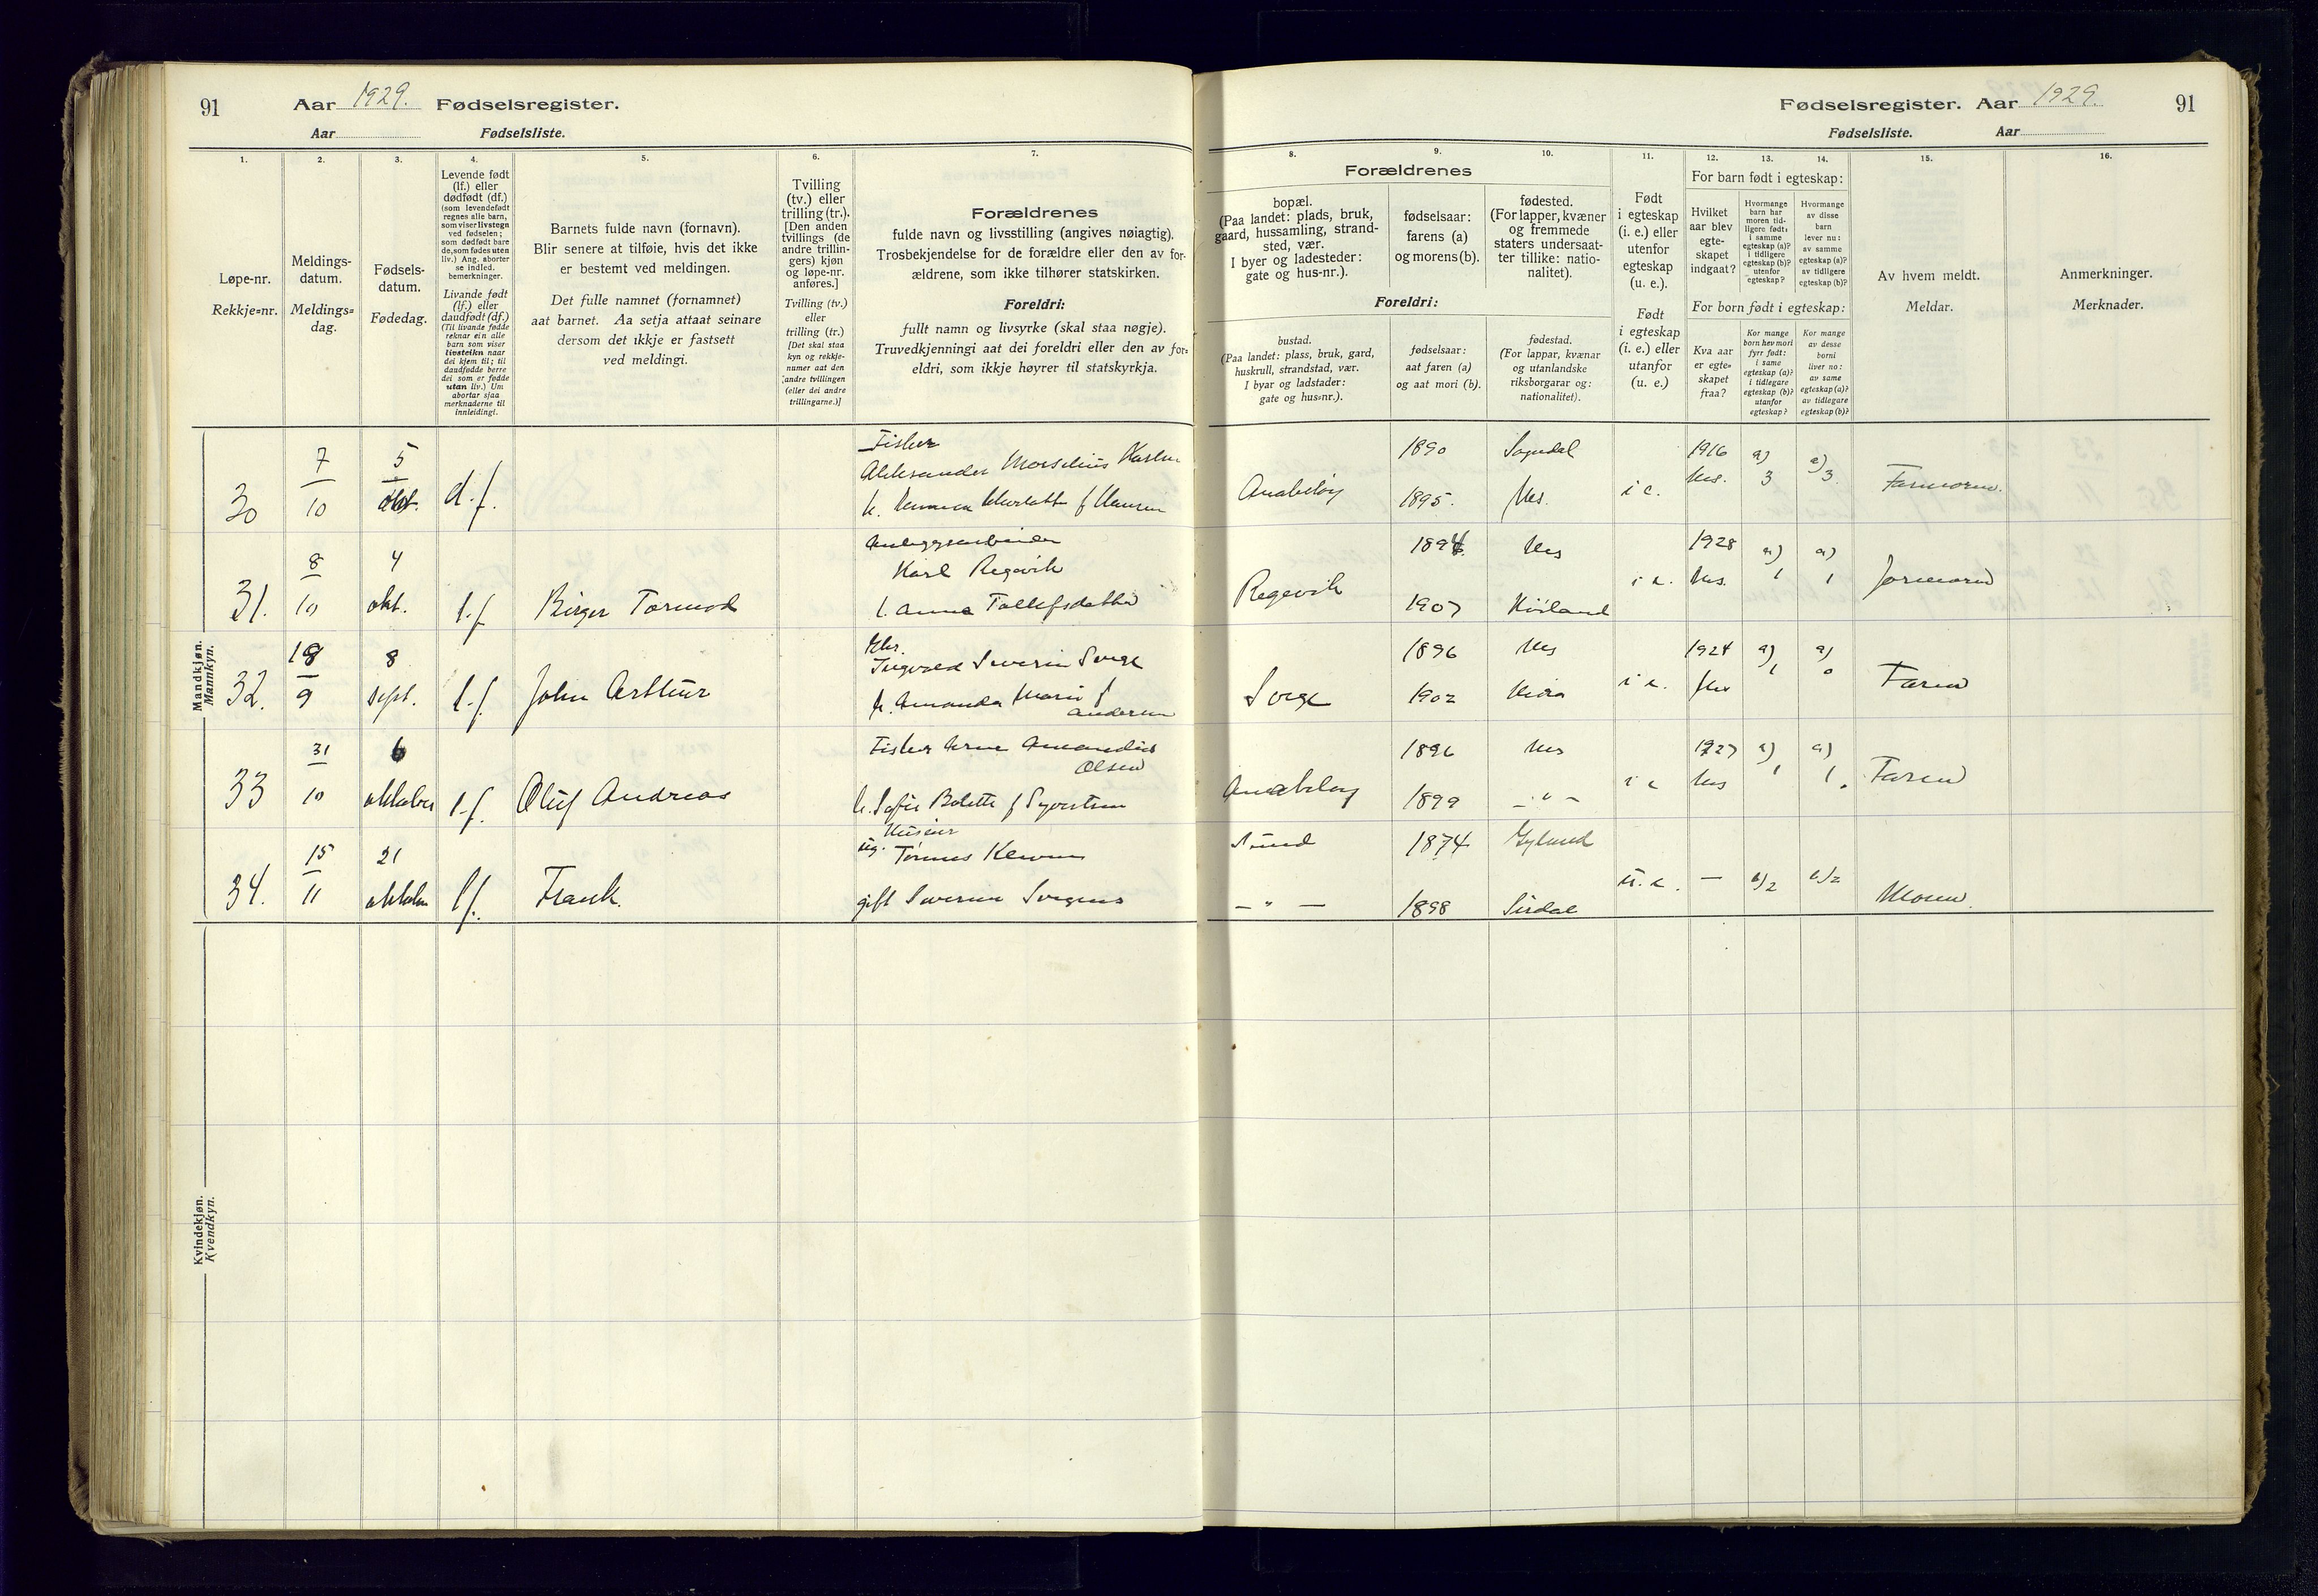 91
Aar 1929. Fødselsregister.
Aar Fødselsliste.
Fødselsregister. Aar 1929.
Fødselsliste. Aar
91
1.
Løpe-nr.
Rekkje=nr.
2.
Meldings-
datum.
Meldings=
dag.
3.
Fødsels-
datum.
Fødedag.
4.
Levende født
(lf.) eller
dødfødt (df.)
(som levendefødt
regnes alle barn,
som viser livstegn
ved fødselen;
som dødfødt bare
de, som fødes uten
liv.) Ang. aborter
se indled.
bemerkninger.
Livande født
(lf.) eller
daudfødt (df.)
(Til livande fødde
reknar ein alle
barn som viser
livsteikn naar
dei kjem til; til
daudfødde berre
dei som er fødde
utan liv.) Um
abortar sjaa
merknaderne til
innleidingi.
5.
Barnets fulde navn (fornavn).
Blir senere at tilføie, hvis det ikke
er bestemt ved meldingen.
Det fulle namnet (fornamnet)
aat barnet. Aa setja attaat seinare
dersom det ikkje er fastsett
ved meldingi.
6.
Tvilling
(tv.) eller
trilling (tr.).
[Den anden
tvillings (de
andre trillin-
gers) kjøn
og løpe-nr.
anføres.]
Tvilling (tv.)
eller
trilling (tr.)
[Det skal staa
kyn og rekkje-
numer aat den
andre tvillingen
(eller dei andre
trillingarne.)]
7.
Forældrenes
fulde navn og livsstilling (angives nøiagtig).
Trosbekjendelse for de forældre eller den av for-
ældrene, som ikke tilhører statskirken.
Foreldri:
fullt namn og livsyrke (skal staa nøgje).
Truvedkjenningi aat dei foreldri eller den av for=
eldri, som ikkje høyrer til statskyrkja.
Forældrenes
8.
bopæl.
(Paa landet: plads, bruk,
gaard, hussamling, strand-
sted, vær.
I byer og ladesteder:
gate og hus-nr.).
9.
fødselsaar:
farens (a)
og morens (b).
10.
fødested.
(For lapper, kvæner
og fremmede
staters undersaat-
ter tillike: natio-
nalitet).
Foreldri:
bustad.
(Paa landet: plass, bruk, gard,
huskrull, strandstad, vær.
I byar og ladstader:
gate og hus=nr.).
fødselsaar:
aat faren (a)
og aat mori (b).
fødestad.
(For lappar, kvænar
og utanlandske
riksborgarar og:
nationalitet).
11.
Født
i egteskap
(i. e.) eller
utenfor
egteskap
(u. e.).
Født
i egteskap
(i. e.) eller
utanfor
(u. e.)
For barn født i egteskap:
12.
Hvilket
aar blev
egte-
skapet
indgaat?
13.
Hvormange
barn har
moren tid-
ligere født:
i samme
egteskap (a)?
i tidligere
egteskap (b)?
utenfor
egteskap?
14.
Hvormange
av disse
barn
lever nu:
av samme
egteskap (a)?
av tidligere
egteskap (b)?
For born født i egteskap:
Kva aar
er egte=
skapet
fraa?
Kor mange
born hev mori
fyrr født:
i same
egteskap (a)?
i tidlegare
egteskap (b)?
utanfor
egteskap?
Kor mange
av desse
borni
liver no:
av same
egteskap (a)?
av tidlegare
egteskap (b)?
15.
Av hvem meldt.
Meldar.
16.
Anmerkninger.
Merknader.
Mandkjøn.
Mannkyn.
30 7/10 5 okt. d.f.
Fisker
Aleksander Karlsen
Anabeløy
1890 Sogndal
1895. Nes.
i e. 1916 Nes. a) 3 a) 3. Farmoren.
31. 8/10 4 okt. l.f. Birger Tormod
Anleggsarbeider
Karl Regevik
h. Anna Tollefsdatter
Regevik
1894 Nes
1907
i e. 1928 Nes. a) 1 a) 1 Jormoren
32. 18/9 8 sept. l.f. John Arthur
Gbr.
Ingvald Severin
h. Amanda Marie f
Andersen
1896 Nes
1902
i e. 1924 Nes a) 1 a) 0 Faren
33 31/10 6 oktober l.f. Oluf Andreas
Fisker Arne
Olsen
h. Sofie Bolette f Syvertsen
Anabeløy
1896 Nes
1899 - " -
i e 1927 Nes a) 1 a) 1. Faren
34. 15/11 21 oktober l.f. Frank.
ug.
gift Severine
Sund
- " -
1874 Gyland
1898 Sirdal
u. e. — b/2 b/2 Moren.
Kvindekjøn.
Kvendkyn.